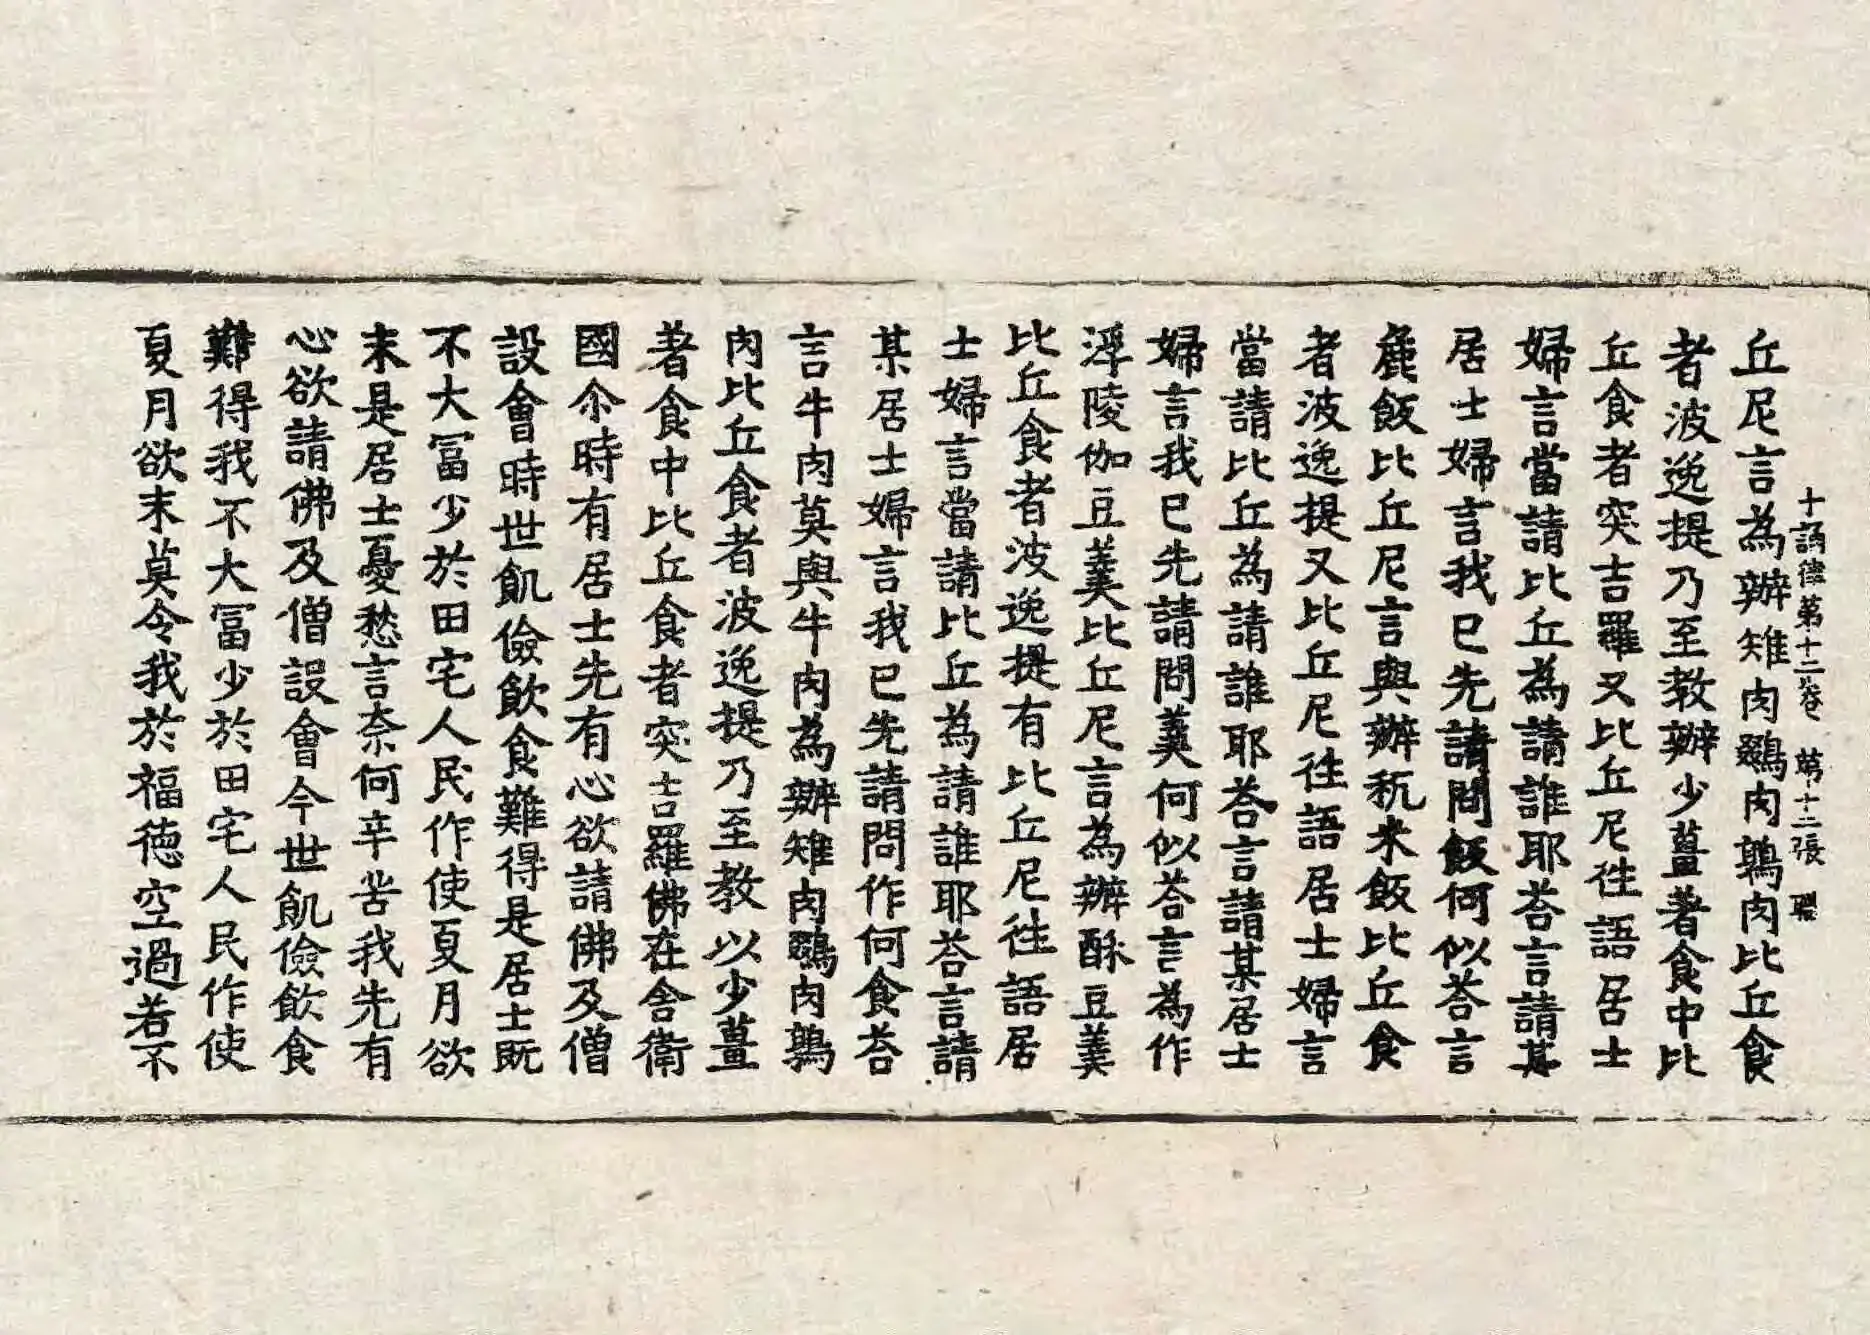 丘尼言為辦雉肉鷃肉鶉肉比丘食
十誦律第十二卷 第十二張
者波逸提乃至教辦少薑著食中比
丘食者突吉羅又比丘尼往語居士
婦言當請比丘為請誰耶荅言請某
居士婦言我已先請問飯何似荅言
麁飯比丘尼言與辦秔米飯比丘食
者波逸提又比丘尼往語居士婦言
當請比丘為請誰耶荅言請某居士
婦言我已先請問羹何似荅言為作
浮陵伽豆羹比丘尼言為辦酥豆羹
比丘食者波逸提有比丘尼往語居
士婦言當請比丘為請誰耶荅言請
某居士婦言我已先請問作何食荅
言牛肉莫與牛肉為辦雉肉鷃肉鶉
肉比丘食者波逸提乃至教以少薑
著食中比丘食者突吉羅佛在舍衛
國尒時有居士先有心欲請佛及僧
設會時世飢儉飲食難得是居士既
不大冨少於田宅人民作使夏月欲
末是居士憂愁言奈何辛苦我先有
心欲請佛及僧設會今世飢儉飲食
難得我不大冨少於田宅人民作使
夏月欲末莫令我於福徳空過若不